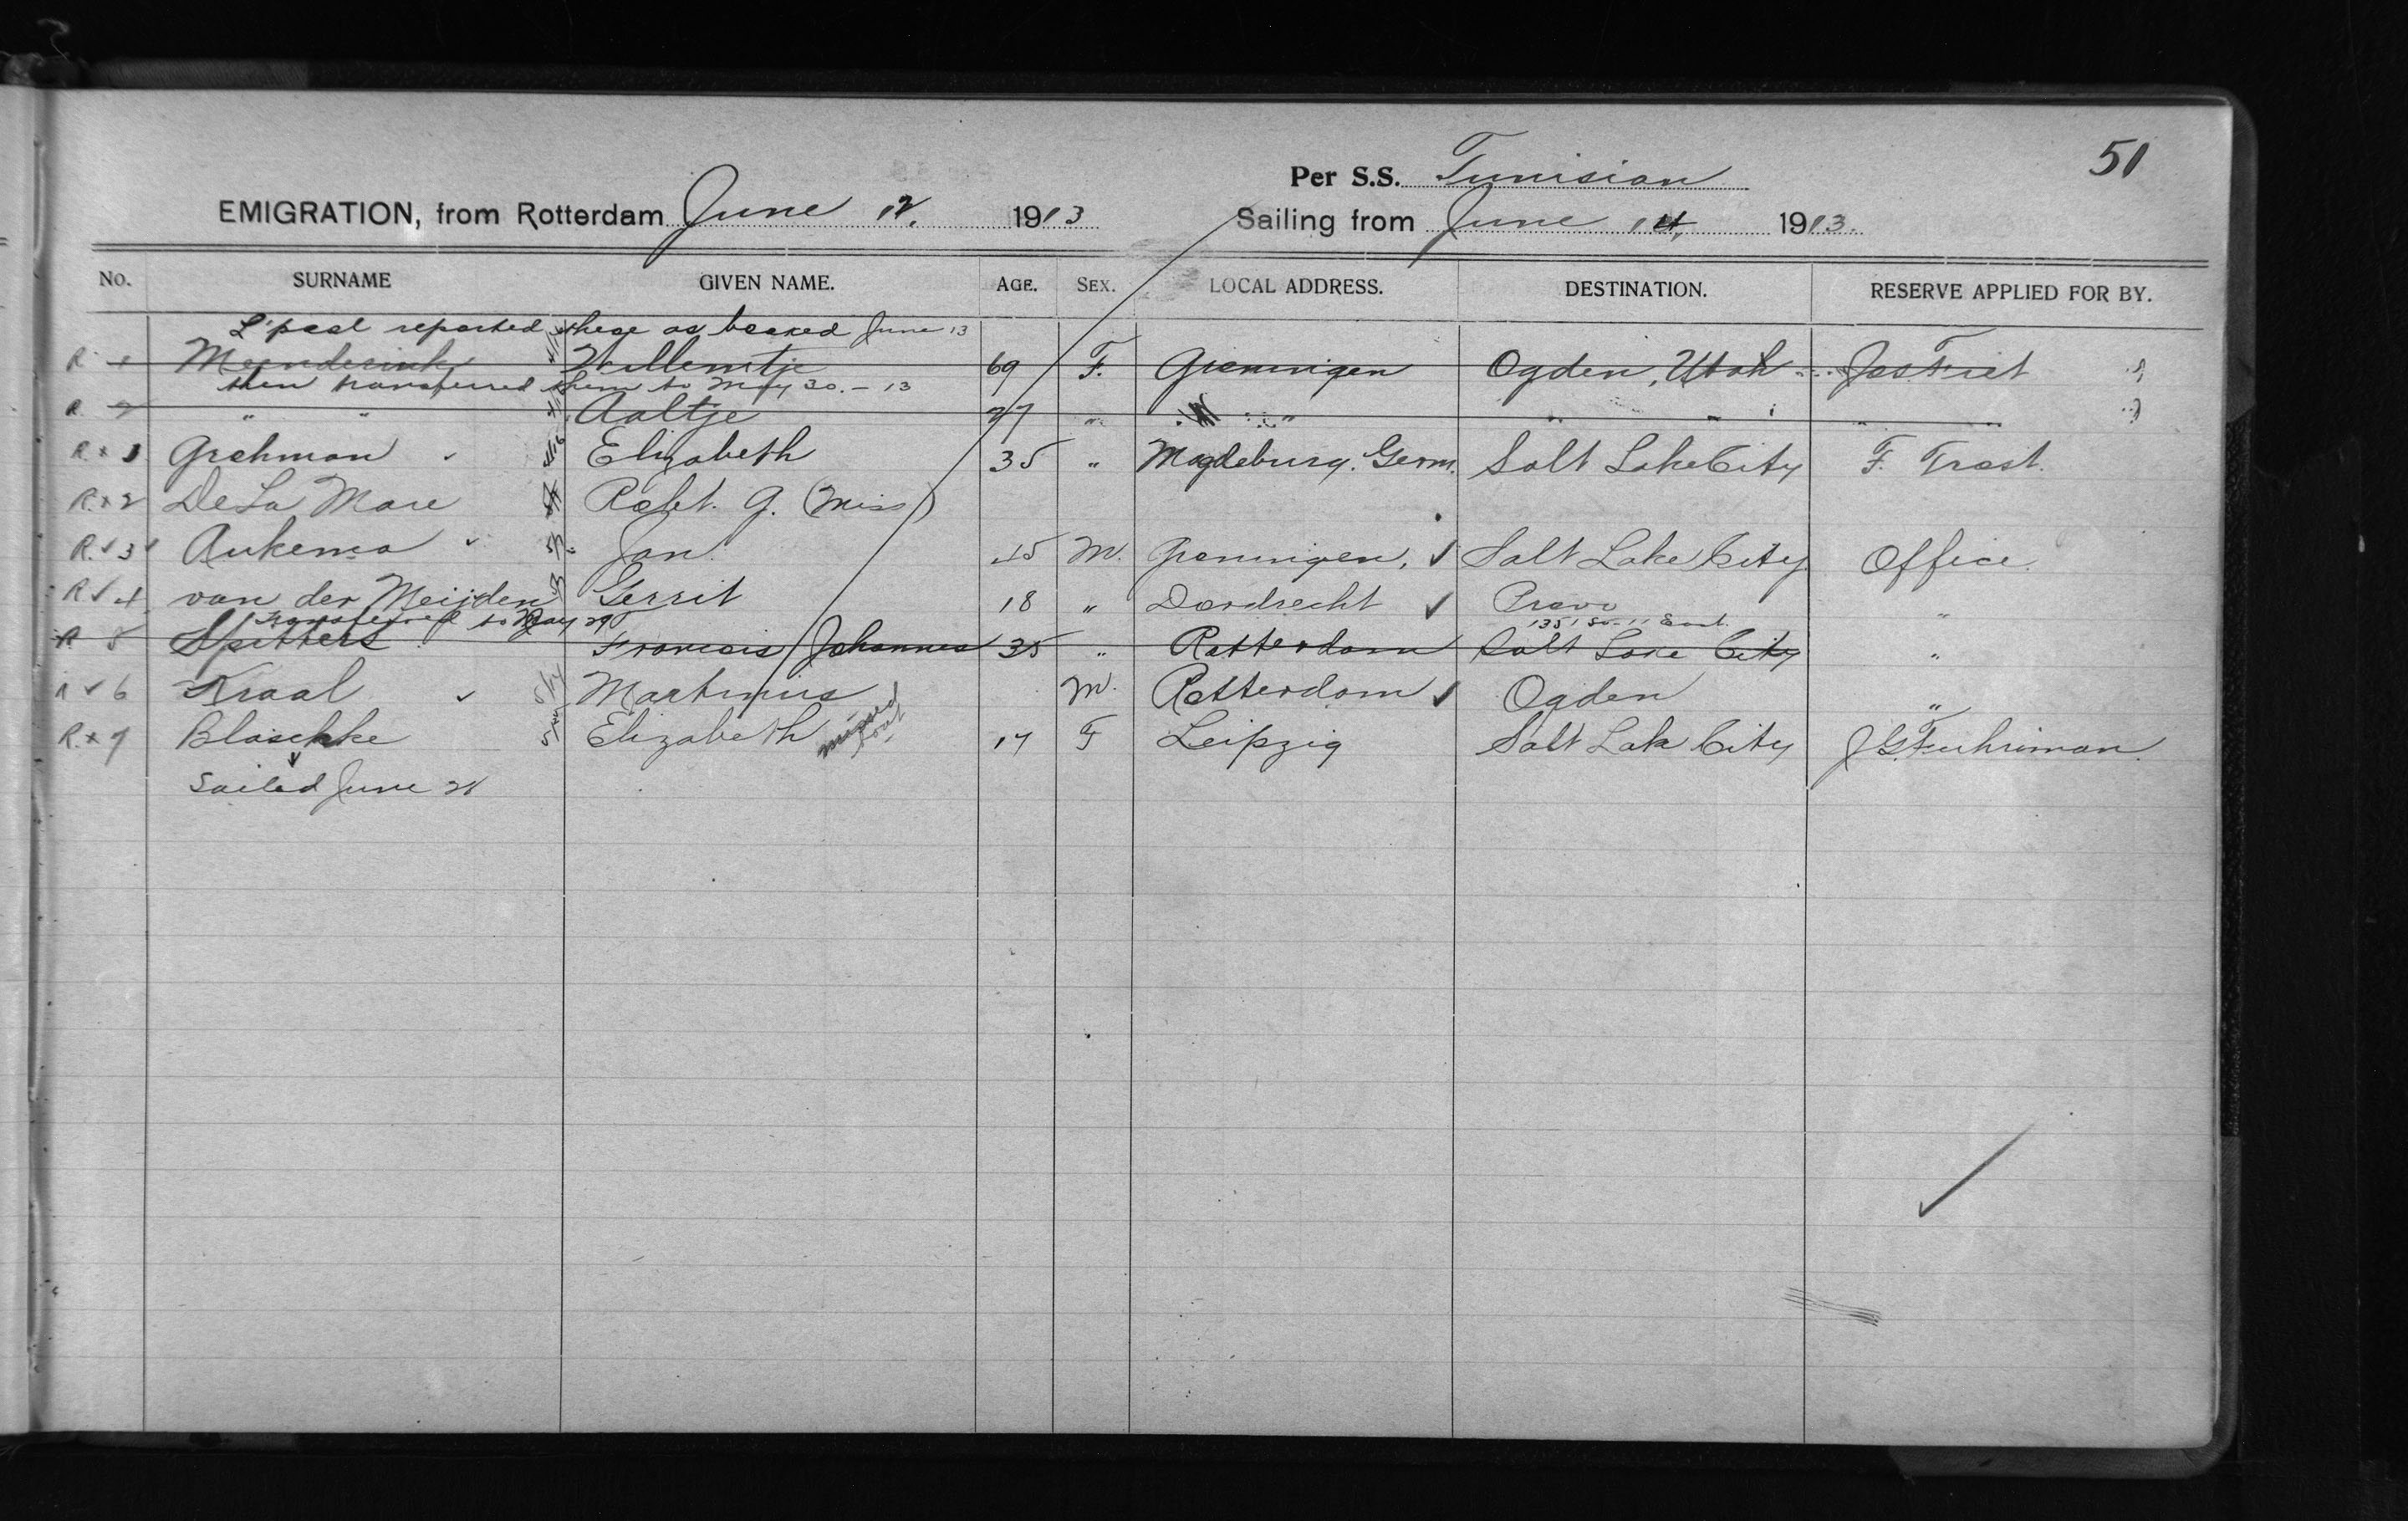 51
Per S.S. Tunisian
EMIGRATION, from Rotterdam June 12. 1913 Sailing from June 14, 1913.
No. SURNAME GIVEN NAME. AGE. SEX. LOCAL ADDRESS. DESTINATION. RESERVE APPLIED FOR BY.
L'pool reported these as booked June 13
R 1 Meenderink Willemtje 69 F. Groningen Ogden, Utah Jos. Friet
then transferred them to May 30. - 13
R. 2 " " Aaltje 27 " " " " " "
R x 1 Grohman Elizabeth 35 " Magdeburg. Germ. Salt Lake City F. Trost.
R. x 2 De La Mare Robt. G. (Miss)
R. ✓ 3 Aukema Jan. 45 M. Groningen, ✓ Salt Lake City Office
R ✓ 4 van der Meijden Gerrit 18 " Dordrecht ✓ Provo "
transferred to May 29 1351 So. 11 East.
R 5 Spitters Francois Johannes 35 " Rotterdam Salt Lake City "
R ✓ 6 Kraal Martinius M. Rotterdam ✓ Ogden "
R. x 7 Blaschke Elizabeth missed boat 17 F Leipzig Salt Lak City J. G. Fuhriman.
Sailed June 21